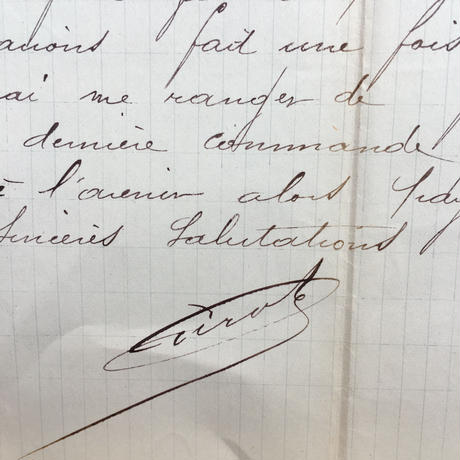 avions fait une fois
ai me ranger de
dernière commande
à l'avenir alors
sincères Salutations